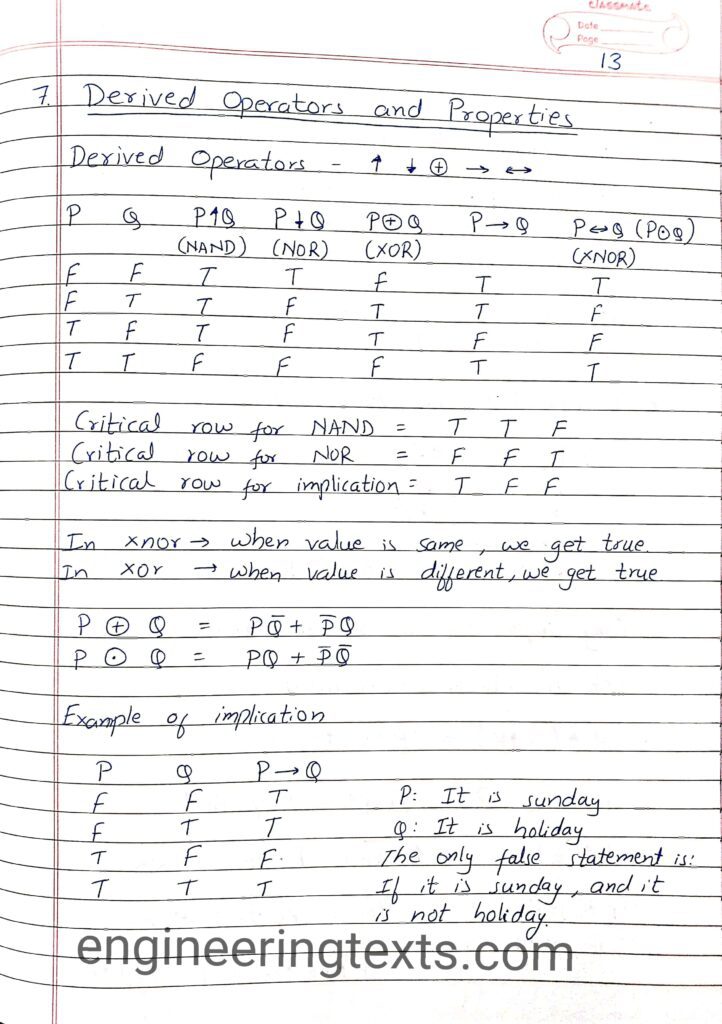 classmate
Date
Page
13
7. Derived Operators and Properties
Derived Operators - ↑ ↓ ⊕ → ↔
P Q P↑Q P↓Q P⊕Q P→Q P↔Q (P⊙Q)
(NAND) (NOR) (XOR) (XNOR)
F F T T F T T
F T T F T T F
T F T F T F F
T T F F F T T
Critical row for NAND = T T F
Critical row for NOR = F F T
Critical row for implication = T F F
In xnor → when value is same, we get true.
In xor → when value is different, we get true
P ⊕ Q = PQ̄ + P̄Q
P ⊙ Q = PQ + P̄Q̄
Example of implication
P Q P→Q
F F T P: It is sunday
F T T Q: It is holiday
T F F. The only false statement is:
T T T If it is sunday, and it
is not holiday.
engineeringtexts.com